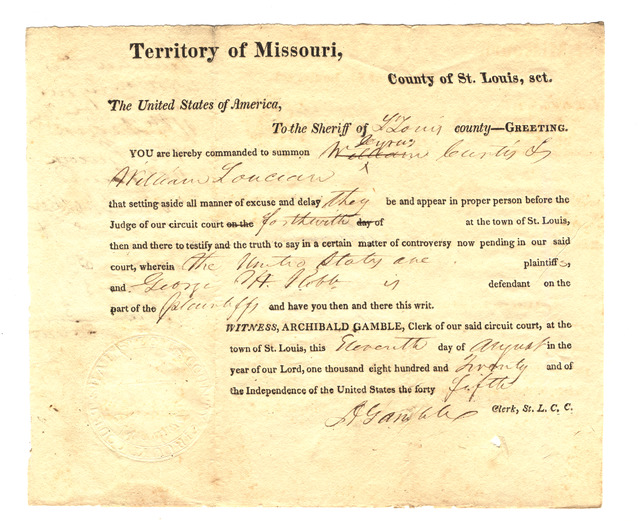 Territory of Missouri,
County of St. Louis, sct.
The United States of America,
To the Sheriff of St Louis county—GREETING.
Cyrus
YOU are hereby commanded to summon William Curtis &
William
that setting aside all manner of excuse and delay they be and appear in proper person before the
Judge of our circuit court on the forthwith day of at the town of St. Louis,
then and there to testify and the truth to say in a certain matter of controversy now pending in our said
court, wherein the United States are plaintiffs,
and George H. is defendant on the
part of the plaintiffs and have you then and there this writ.
WITNESS, ARCHIBALD GAMBLE, Clerk of our said circuit court, at the
town of St. Louis, this Eleventh day of August in the
year of our Lord, one thousand eight hundred and Twenty and of
the Independence of the United States the forty fifth
A Gamble Clerk, St. L. C. C.